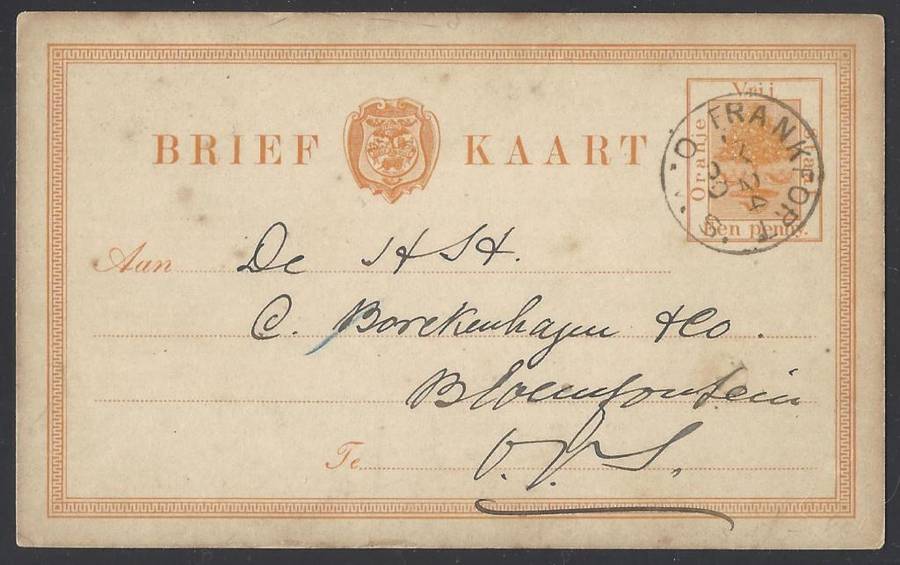 BRIEF KAART
Vrij
Oranje
Staat
Een penny.
FRANKFORT
24
Aan De H H.
C. Borckenhagen & Co.
Bloemfontein
Te O.V.S.